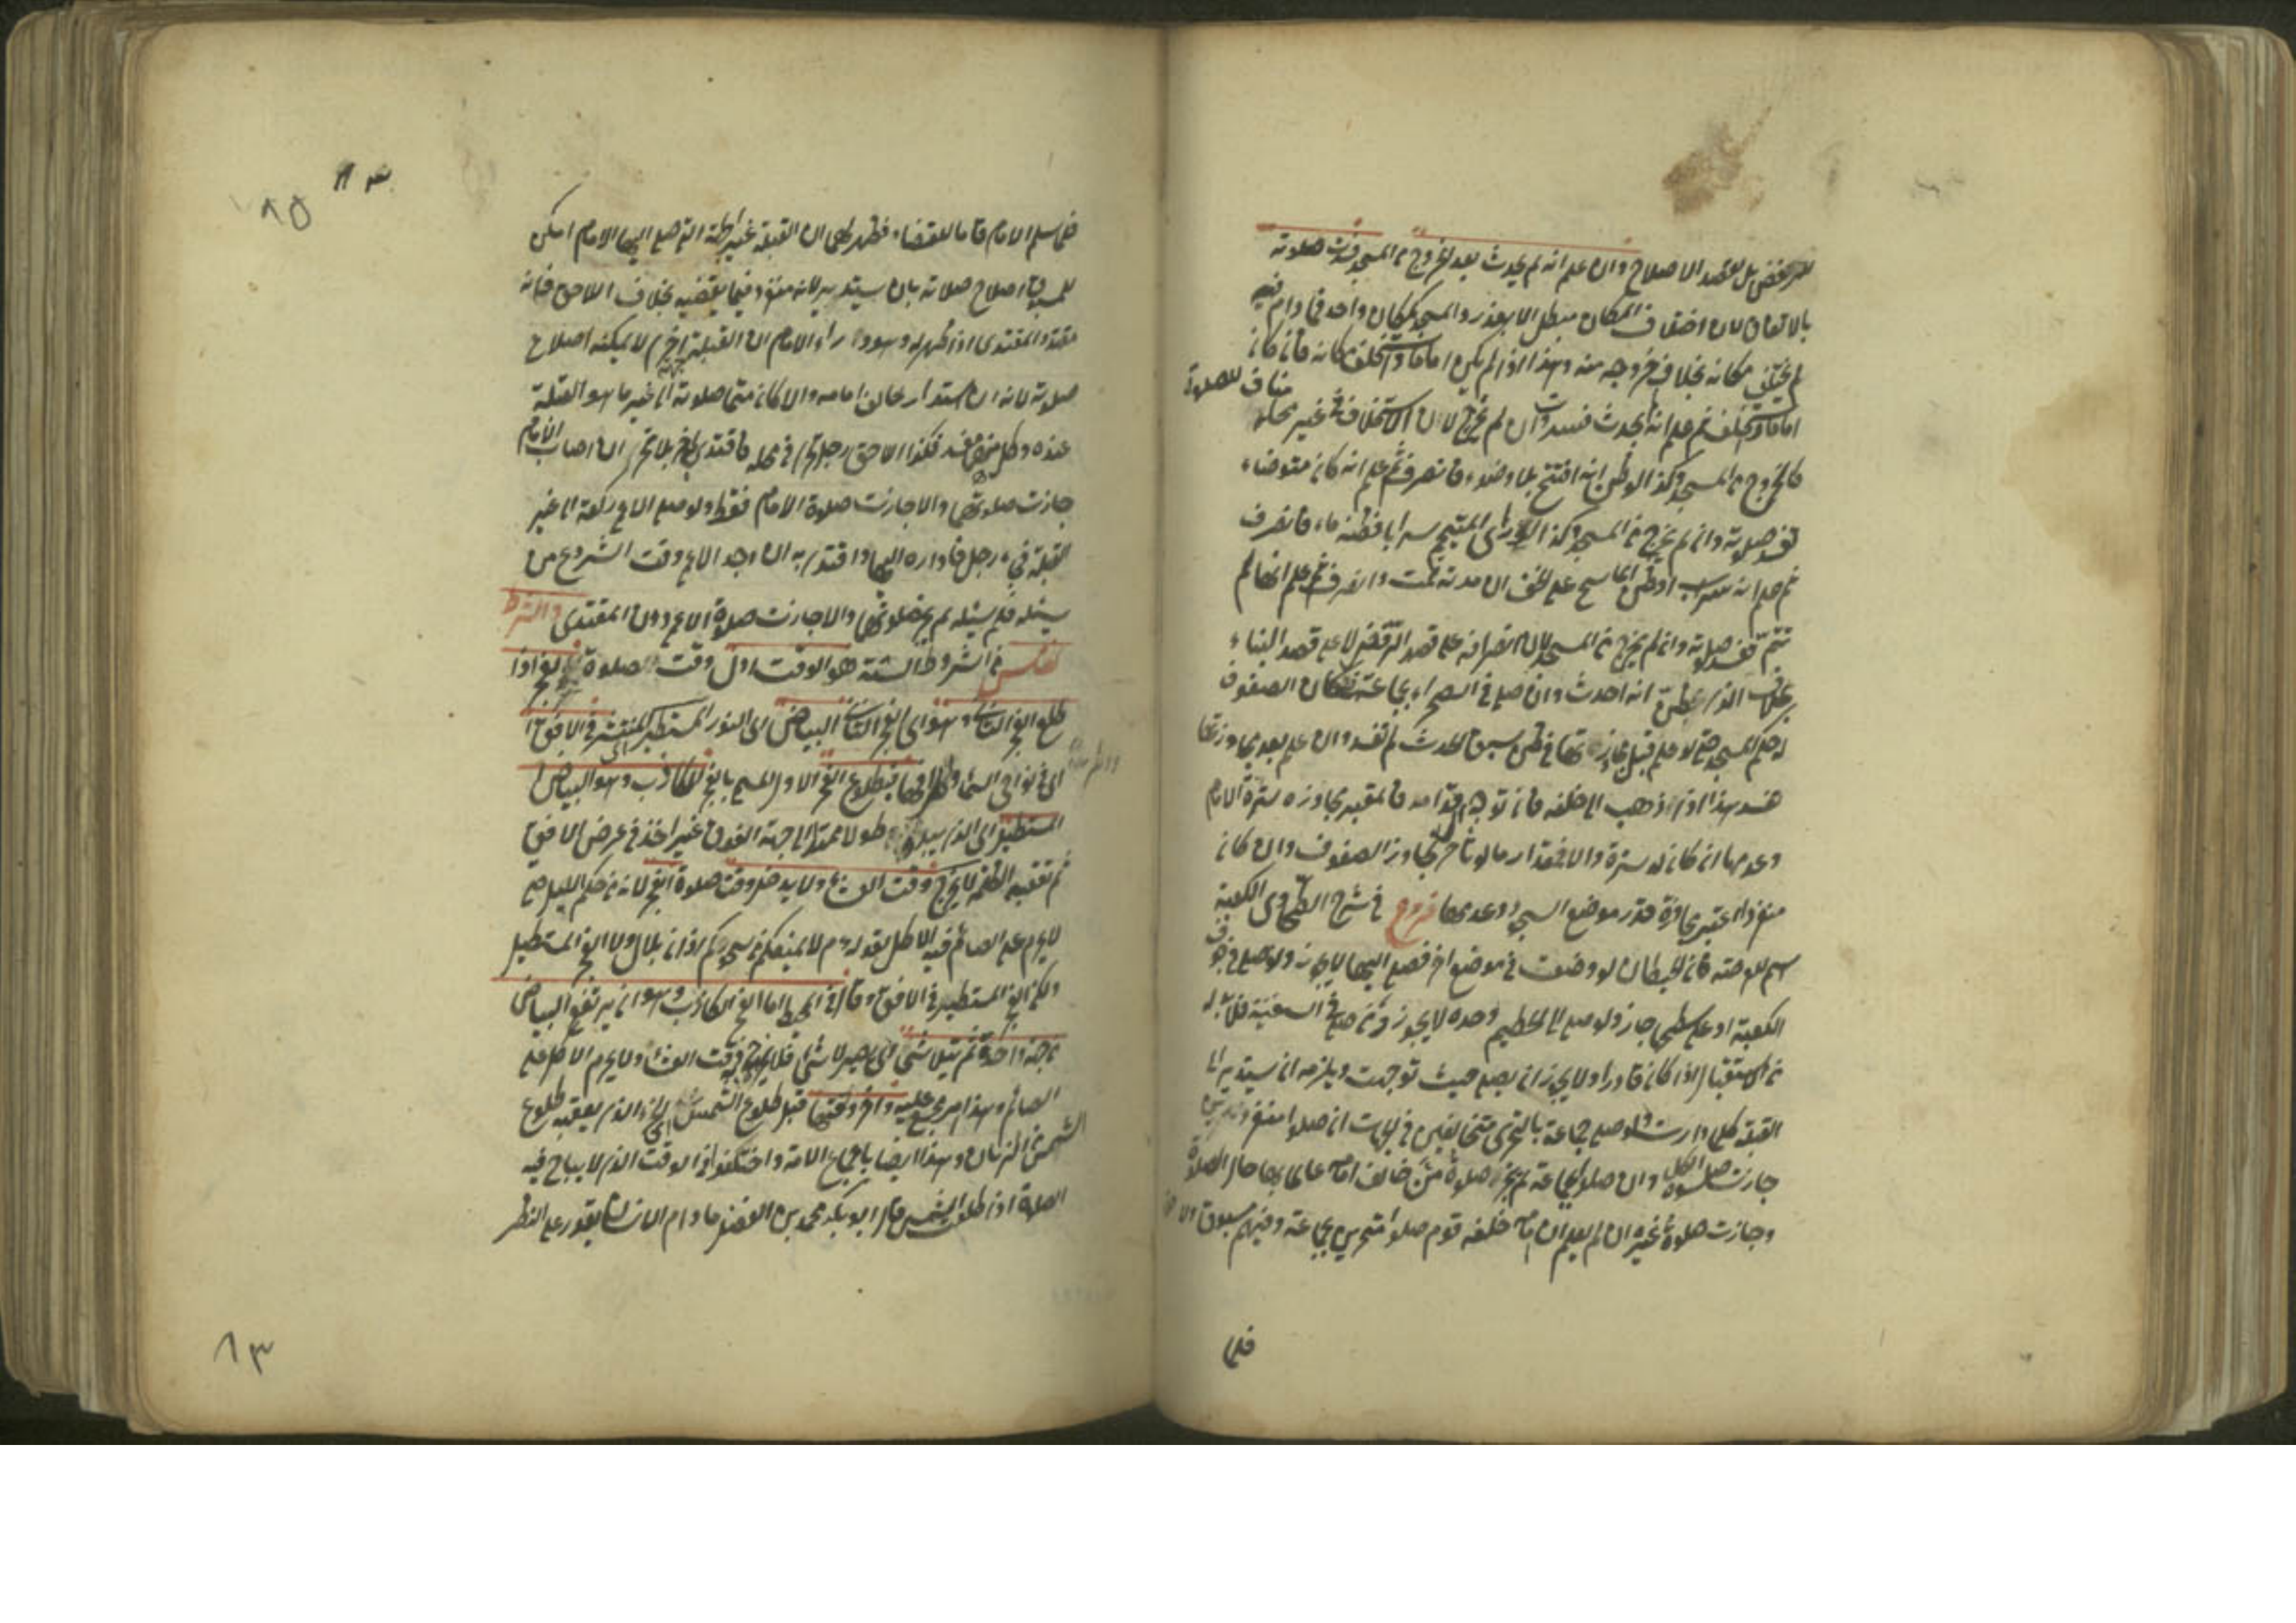 للرفض بل لقصد الاصلاح وان علم انه لم يحدث بعد الخروج من المسجد فسدت صلوته
بالاتفاق لان اختلاف المكان مبطل الا بعذر والمسجد كمكان واحد فما دام فيه
لم يختلف مكانه بخلاف خروجه منه وهذا اذا لم يكن اماما واستخلف مكانه فان كان
اماما واستخلف ثم علم انه لم يحدث فسدت وان لم يخرج لان الاستخلاف في غير محله مناف للصلوة
كالخروج من المسجد وكذا لو ظن انه افتتح بلا وضوء فانصرف ثم علم انه كان متوضئا
تفسد صلوته وان لم يخرج من المسجد وكذا لو رأى المتيمم سرابا فظنه ماء فانصرف
ثم علم انه سراب او ظن الماسح على الخف ان مدته تمت وانصرف ثم علم انها لم
تتم تفسد صلوته وان لم يخرج من المسجد لان انصرافه على قصد الرفض لا على قصد البناء
بخلاف الذي ظن انه احدث وان صلى في الصحراء بجماعة فمكان الصفوف
له حكم المسجد حتى لو علم قبل مجاوزتها في ظن سبق الحدث لم تفسد وان علم بعد مجاوزتها
تفسد هذا اذا ذهب الى خلفه فان توجه قدامه فالمعتبر مجاوزة سترة الامام
وعدمها ان كان له سترة والا فمقدار ما لو تأخر لجاوز الصفوف وان كان
منفردا اعتبر مجاوزة قدر موضع السجود وعدمها فروع في شرح الطحاوي الكعبة
اسم للعرصة فان الحيطان لو وضعت في موضع اخر فصلى اليها لا يجوز ولو صلى في جوف
الكعبة او على سطحها جاز ولو صلى الى الحطيم وحده لا يجوز ومن صلى في السفينة فلا بد له
من الاستقبال اذا كان قادرا ولا يجوز ان يصلي حيث توجهت ويلزمه ان يستدير الى
القبلة كلما دارت ولو صلى جماعة بالتحري متخالفين في الجهات ان صلوا منفردين
جازت صلوة الكل وان صلوا بجماعة لم يجز صلوة من خالف امامه عالما بها حال الصلوة
وجازت صلوة غيره ان لم يعلم ان امامه خلفه قوم صلوا متحرين بجماعة وفيهم مسبوق ولاحق
فلما
٨٣
٨٥
فلما سلم الامام قاما للقضاء فظهر لهما ان القبلة غير الجهة التي صلى اليها الامام امكن
للمسبوق اصلاح صلاته بان يستدير لانه منفرد فيما يقضيه بخلاف اللاحق فانه
مقتد والمقتدي اذا ظهر له وهو وراء الامام ان القبلة غيرها لا يمكنه اصلاح
صلوته لانه ان استدار خالف امامه والا كان متما صلوته الى غير ما هو القبلة
عنده وكل منهما مفسد فكذا اللاحق رجل تحرى في محله فاقتدى به اخر بلا تحر ان اصاب الامام
جازت صلوتهما والا جازت صلوة الامام فقط ولو صلى الاعمى ركعة الى غير
القبلة فجاء رجل فاداره اليها واقتدى به ان وجد الاعمى وقت الشروع من
يسئله فلم يسئله لم يجز صلوتهما والا جازت صلوة الاعمى دون المقتدي والشرط
الخامس من الشروط الستة هو الوقت اول وقت الصلوة الفجر اذا
طلع الفجر الثاني وهو اي الفجر الثاني البياض اي النور المستطير المنتشر في الافق
اي في نواحي السماء واطرافها فبطلوع الفجر الاول المسمى بالفجر الكاذب وهو البياض
المستطيل اي الذي يبدو طولا ممتدا الى جهة الفوق غير اخذ في عرض الافق
ثم تعقبه الظلمة لا يخرج وقت العشاء ولا يدخل وقت صلوة الفجر لانه من حكم الليل حتى
لا يحرم على الصائم فيه الاكل لقوله عم لا يمنعكم من سحوركم اذان بلال ولا الفجر المستطيل
ولكن الفجر المستطير في الافق وقال في المحيط اما الفجر الكاذب وهو ان يرتفع البياض
من جهة واحدة ثم يتلاشى اي يصير لا شئ فلا يخرج به وقت العشاء ولا يحرم الاكل على
الصائم وهذا امر مجمع عليه واخر وقتها قبل طلوع الشمس اي الجزء الذي يعقبه طلوع
الشمس من الزمان وهذا ايضا باجماع الامة واختلفوا في الوقت الذي لا يباح فيه
الصلوة اذا طلعت الشمس قال ابو بكر محمد بن الفضل ما دام الانسان يقدر على النظر
٨٣